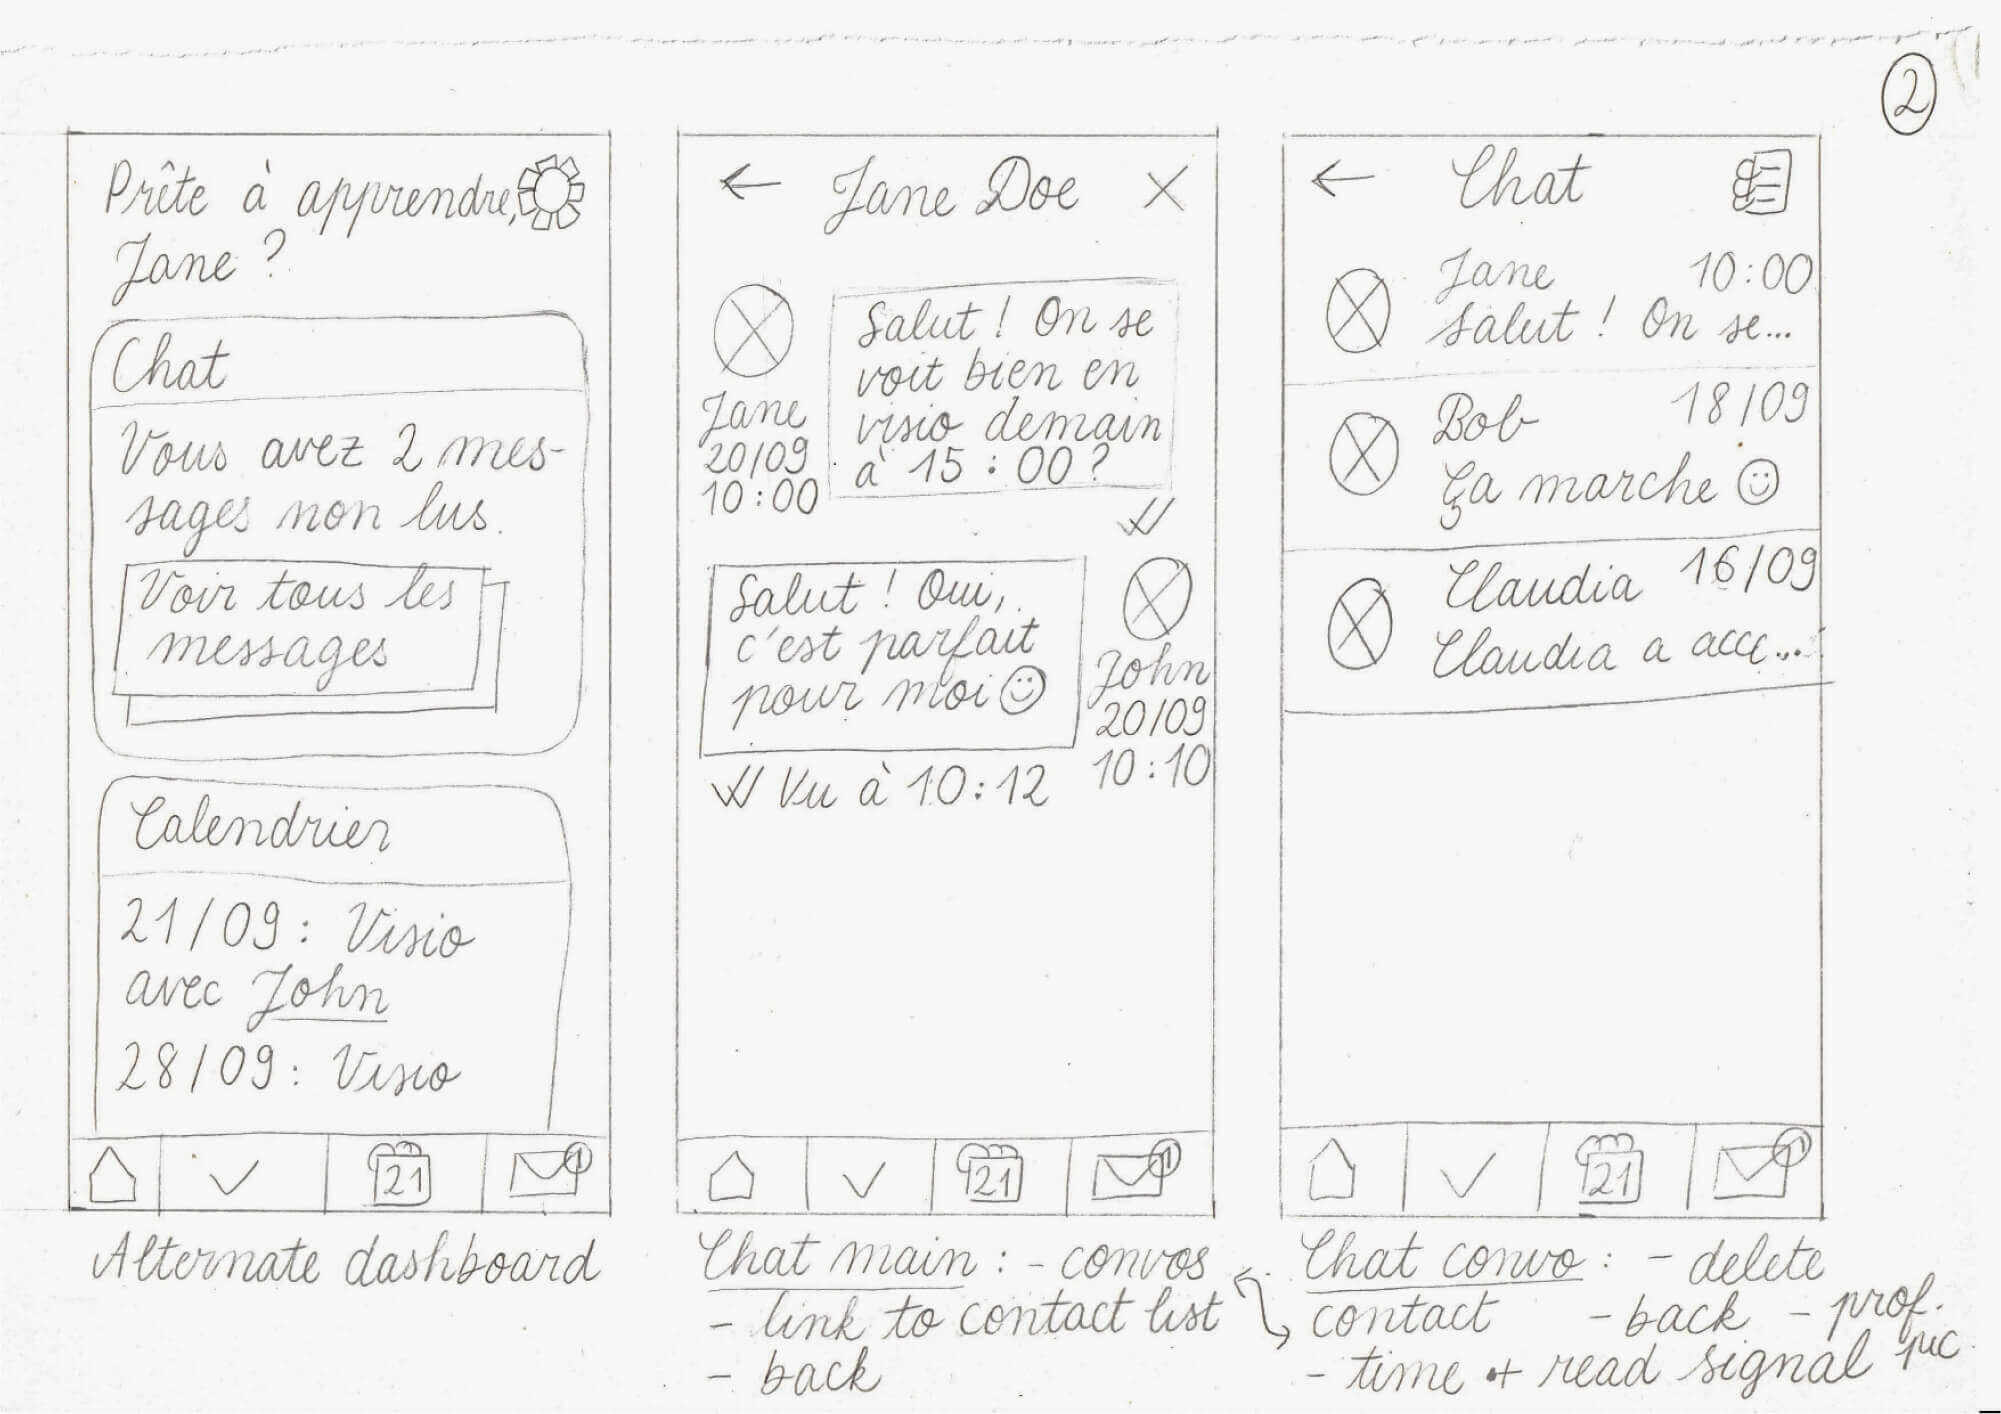 2
Prête à apprendre,
Jane ?
Chat
Vous avez 2 mes-
sages non lus.
Voir tous les
messages
Calendrier
21/09 : Visio
avec John
28/09 : Visio
21
1
Alternate dashboard
Jane Doe
Jane
20/09
10:00
Salut ! On se
voit bien en
visio demain
à 15 : 00 ?
Salut ! Oui,
c'est parfait
pour moi ☺
John
20/09
10:10
Vu à 10:12
21
1
Chat main : - convos
- link to contact list
- back
Chat
Jane 10:00
Salut ! On se...
Bob 18/09
Ça marche ☺
Claudia 16/09
Claudia a acce...
21
1
Chat convo : - delete
contact - back - prof.
pic
- time + read signal